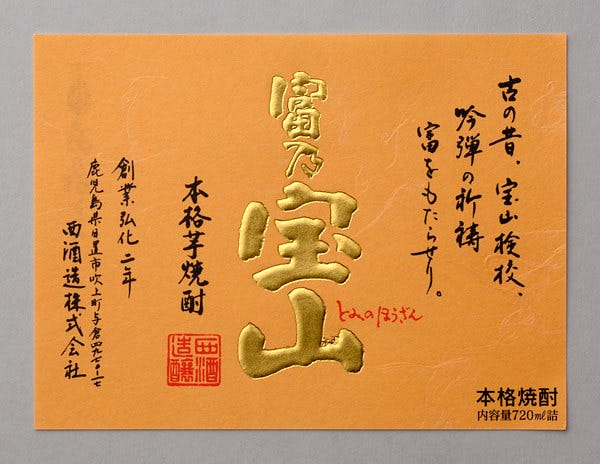 古の昔、宝山検校、
吟弾の祈祷
富をもたらせり。
富乃宝山
とみのほうざん
本格芋焼酎
西酒造醸
創業弘化二年
鹿児島県日置市吹上町与倉四九七〇-一七
西酒造株式会社
本格焼酎
内容量720ml詰